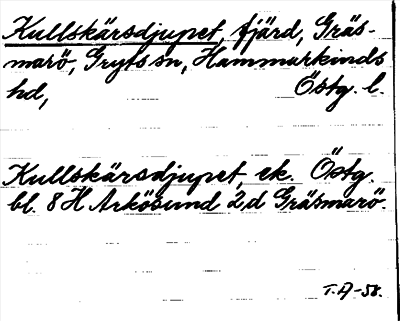 Kullskärsdjupet, fjärd, Gräs-
marö, Gryts sn, Hammarkinds
hd, Östg. l.
Kullskärsdjupet, ek. Östg.
bl. 8 H Arkösund 2d Gräsmarö.
T.A-58.